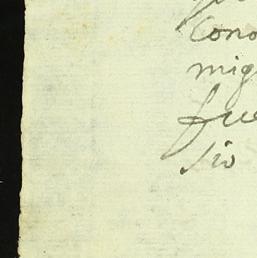 Cono
mig
fue
sio